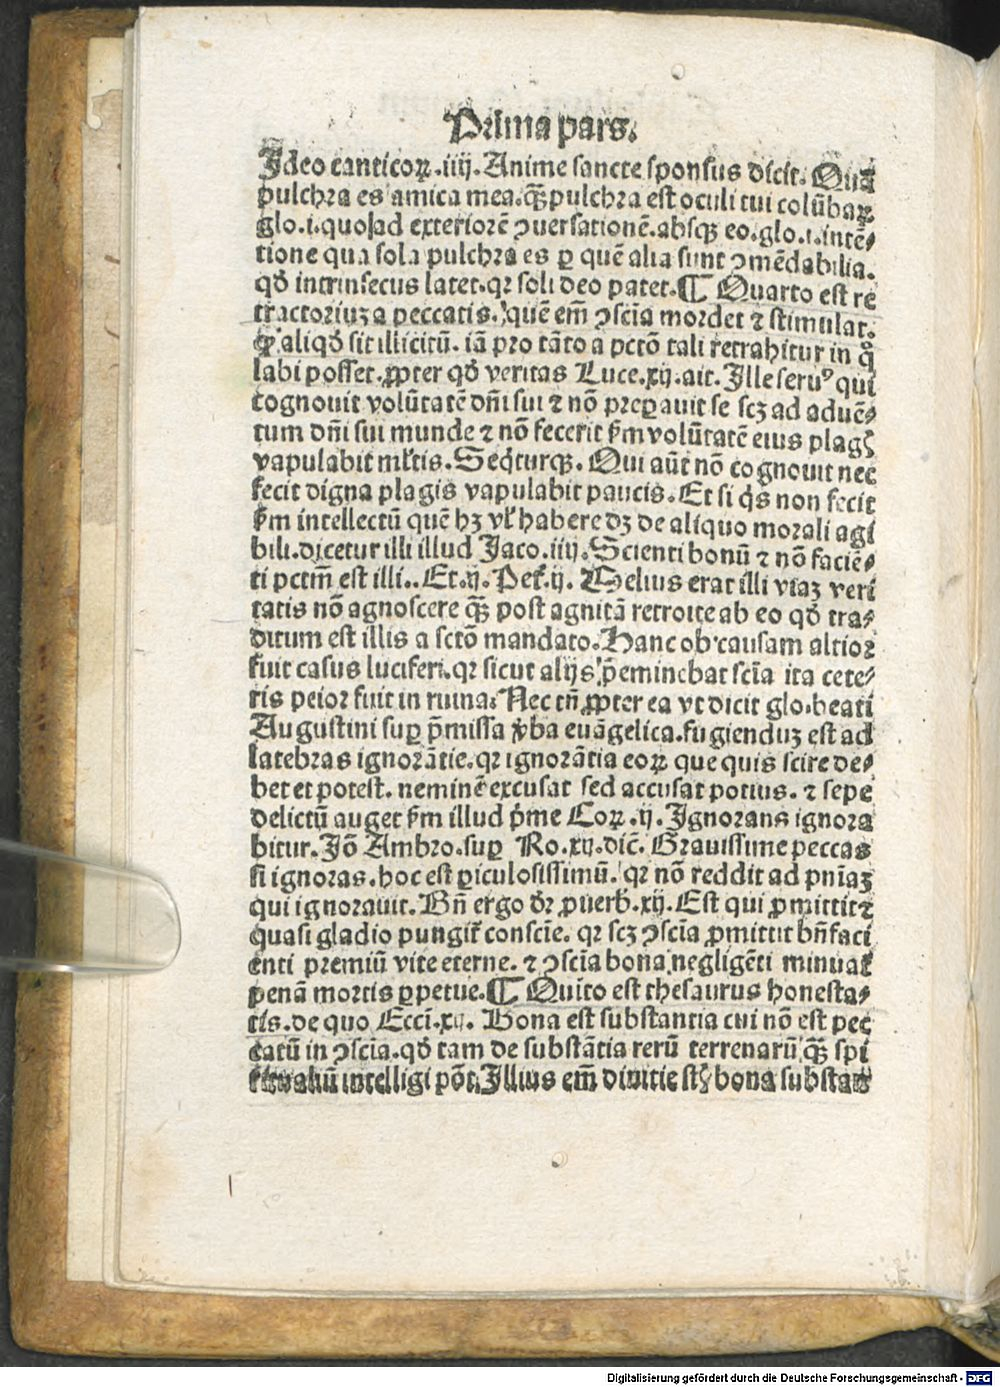 Prima pars.
Ideo canticoꝝ .iiij. Anime sancte sponsus dicit. Quā
pulchra es amica mea. qꝫ pulchra est oculi tui colūbaꝝ
glo .i. quo ad exteriorē ↄuersationē. absqꝫ eo. glo .i. intē⸗
tione qua sola pulchra es ꝑ quē alia sunt ↄmēdabilia.
qđ intrinsecus latet. qꝛ soli deo patet. ¶ Quarto est re
tractoriuꝫ a peccatis. quē em̄ ↄscīa mordet ⁊ stimulat.
ꝙ aliqđ sit illicitū. iā pro tāto a pctō tali retrahitur in q̊
labi posset. ꝓpter qđ veritas Luce .xij. ait. Ille seruꝰ qui
cognouit volūtatē dn̄i sui ⁊ nō preꝑauit se scꝫ ad aduē⸗
tum dn̄i sui munde ⁊ nō fecerit ẜm volūtatē eius plagꝭ
vapulabit ml̓tis. Seq̇turqꝫ. Qui aūt nō cognouit nec
fecit digna plagis vapulabit paucis. Et si q̇s non fecit
ẜm intellectū quē hꝫ vl̓ habere dꝫ de aliquo morali agi
bili. dicetur illi illud Jaco .iiij. Scienti bonū ⁊ nō faciē⸗
ti pctm̄ est illi.. Et .ij. Pet̓ .ij. Melius erat illi viaꝫ veri
tatis nō agnoscere qꝫ post agnitā retroite ab eo qđ tra⸗
ditum est illis a sctō mandato. Hanc ob causam altior
fuit casus luciferi. qꝛ sicut alijs p̄eminebat scīa ita cete⸗
ris peior fuit in ruina. Nec tn̄ ꝓpter ea vt dicit glo. beati
Augustini suꝑ p̄missa v̓ba euāgelica. fugienduꝫ est ad
latebras ignorātie. qꝛ ignorātia eoꝝ que quis scire de⸗
bet et potest. neminē excusat sed accusat potius. ⁊ sepe
delictū auget ẜm illud p̓me Coꝝ .ij. Ignorans ignora
bitur. Iō Ambro. suꝑ Ro .xij. dic̄. Grauissime peccas
si ignoras. hoc est ꝑiculosissimū. qꝛ nō reddit ad pn̄iaꝫ
qui ignorauit. Bn̄ ergo dr̄ ꝓuerb̓ .xij. Est qui ꝓmittit ⁊
quasi gladio pungit̓ conscīe. qꝛ scꝫ ↄscīa ꝓmittit bn̄faci
enti premiū vite eterne. ⁊ ↄscīa bona negligēti minuat
penā mortis ꝑpetue. ¶ Quīto est thesaurus honesta⸗
tis. de quo Eccī .xij. Bona est substantia cui nō est pec
catū in ↄscīa. qđ tam de substātia rerū terrenarū qꝫ spi
ritualiū intelligi pōt. Illius em̄ diuitie st̓ bona substan
Digitalisierung gefördert durch die Deutsche Forschungsgemeinschaft - DFG